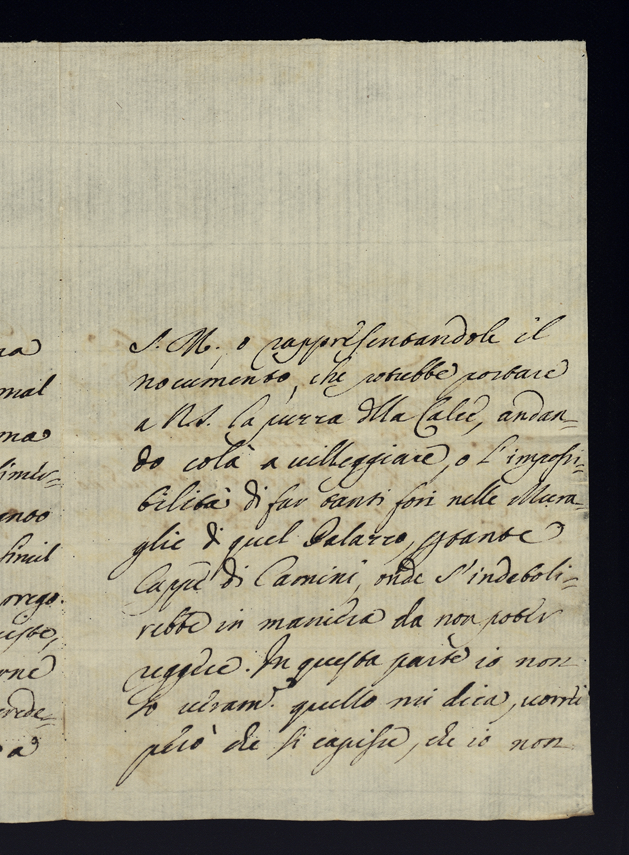 na
mail
ma
simil
orego.
ueste,
rne
crede-
a
S. M., o rappresentandole il
nocumento, che potrebbe portare
a N.S. la puzza della Calce, andan-
do colà a villeggiare, o l'impossi-
bilità di far tanti fori nelle Mura-
glie di quel Palazzo, p tante
Cappe di Camini, onde s'indeboli-
rebbe in maniera da non poter
reggere. In questa parte io non
so veram.e quello mi dica, vorrei
però che si capisse, che io non